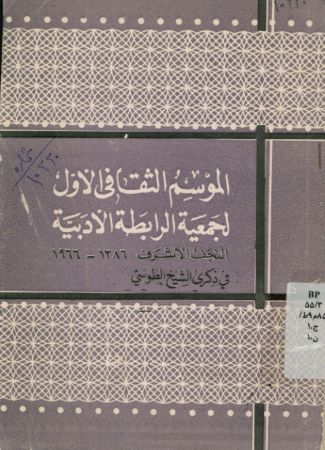 ١٠٢٢٠
الموسم الثقافي الأول
لجمعية الرابطة الأدبية
النجف الاشرف ١٣٨٦ - ١٩٦٦
في ذكرى الشيخ الطوسي
BP
٥٥/٣
ج.١
ن.١